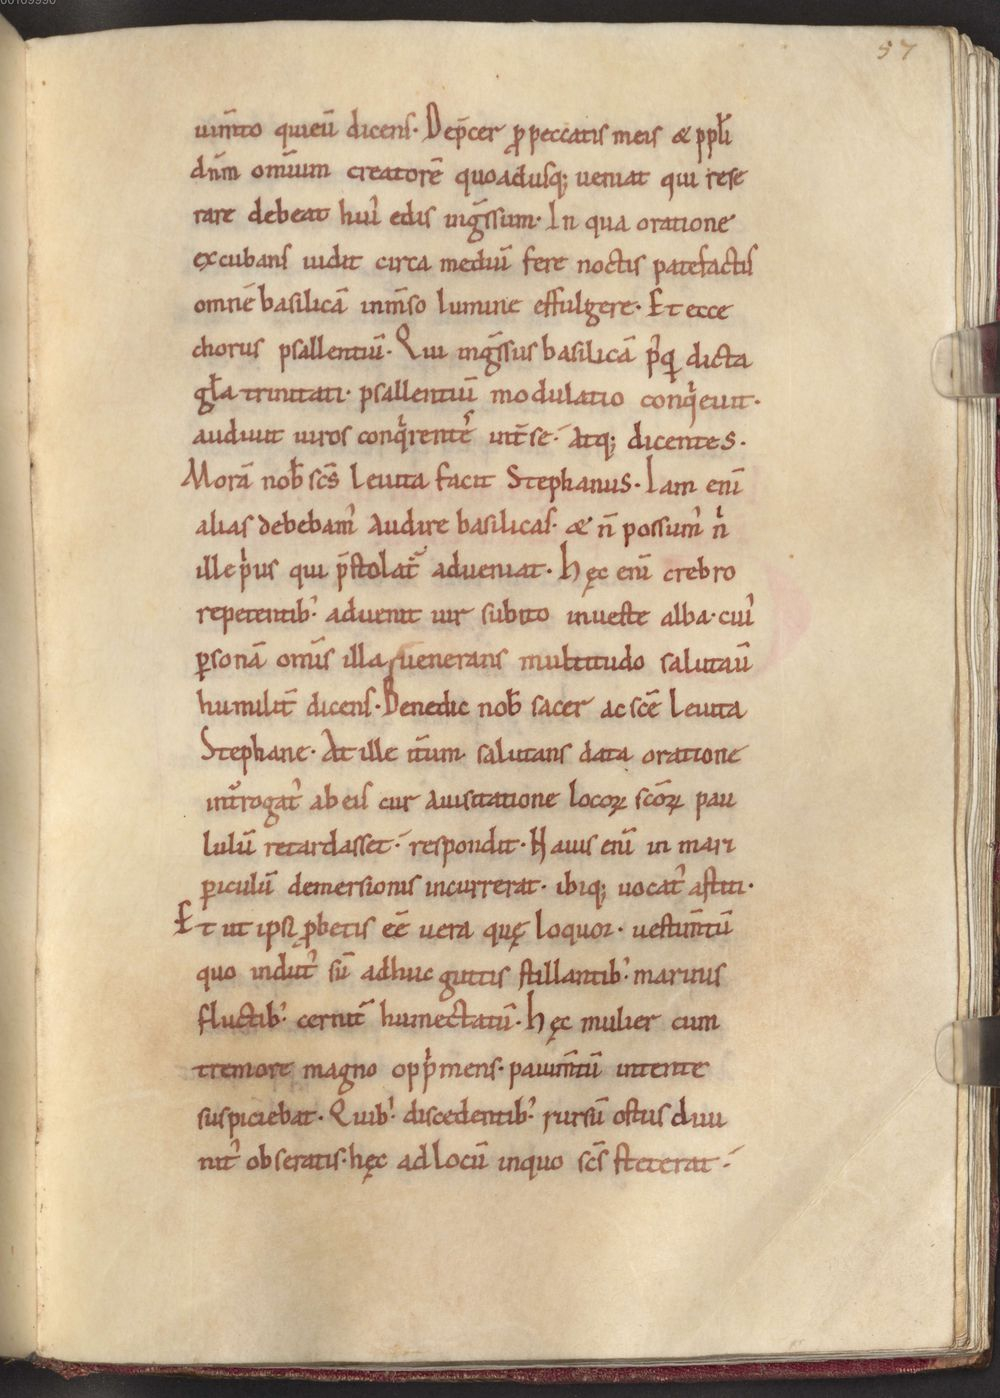 57
uim̄to quieū dicens. Dep̄cer ꝓpeccatis meis æ ppl̄i
dn̄m omīum creatorē quoadusq; ueniat qui rese
rare debeat hui᾽ edis inḡssum. In qua oratione
excubans uidit circa mediū fere noctis patefactis
omnē basilicā inm̄so lumine effulgere. Et ecce
chorus psallentiū. Qui inḡssus basilicā p᾽q̄ dicta
gl̄a trinitati. psallentiū modulatio conq̄euit.
audiuit uiros conq̄rentes int̄ se. Atq; dicentes.
Morā nob̄ sc̄s leuita facit Stephanus. Iam enī
alias debebam᾽ audire basilicas. æ n̄ possum᾽ nͥ
ille pͥus qui p̄stolat᾽ adueniat. hęc enī crebro
repetentib᾽. aduenit uir subito inueste alba. cui᾽
ꝑsonā omīs illa uenerans multitudo salutaū
humilit̄ dicens. Benedic nob̄ sacer ac sc̄e leuita
Stephane. At ille it̄um salutans data oratione
int̄rogat᾽ ab eis cur auisitatione locoꝝ sc̄oꝝ pau
lulū retardasset. respondit. Nauis enī in mari
ꝑiculū demersionis incurrerat. ibiq; uocat᾽ astiti.
Et ut ipsi ꝓbetis eē uera quę loquor. uestim̄tū
quo indut᾽ sū adhuc guttis stillantib᾽. marinis
fluctib᾽. cernit̄ humectatū. hęc mulier cum
tremore magno oppͥmens. pauim̄tū intente
suspiciebat. Quib᾽. discedentib᾽. rursū ostiis diui
nit᾽ obseratis. hęc ad locū inquo sc̄s steterat.